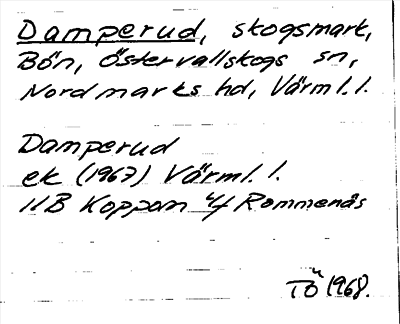 Damperud, skogsmark,
Bön, Östervallskogs sn,
Nordmarks hd, Värml. l.
Damperud
ek (1967) Värml. l.
11B Koppom 4f Rommenäs
TÖ 1968.